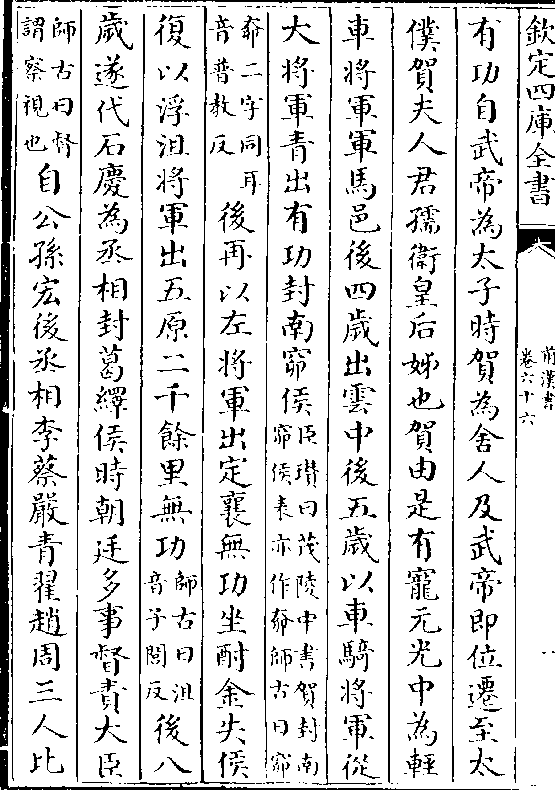 欽定四庫全書
前漢書
卷六十六
一
有功自武帝為太子時賀為舍人及武帝即位遷至太
僕賀夫人君孺衛皇后姊也賀由是有寵元光中為輕
車將軍軍馬邑後四歲出雲中後五歲以車騎將軍從
大將軍青出有功封南窌侯臣瓚曰茂陵中書賀封南窌侯表亦作奅師古曰窌
奅二字同耳音普教反後再以左將軍出定襄無功坐酎金失侯
復以浮沮將軍出五原二千餘里無功師古曰沮音子閭反後八
歲遂代石慶為丞相封葛繹侯時朝廷多事督責大臣
師古曰督謂察視也自公孫宏後丞相李蔡嚴青翟趙周三人比